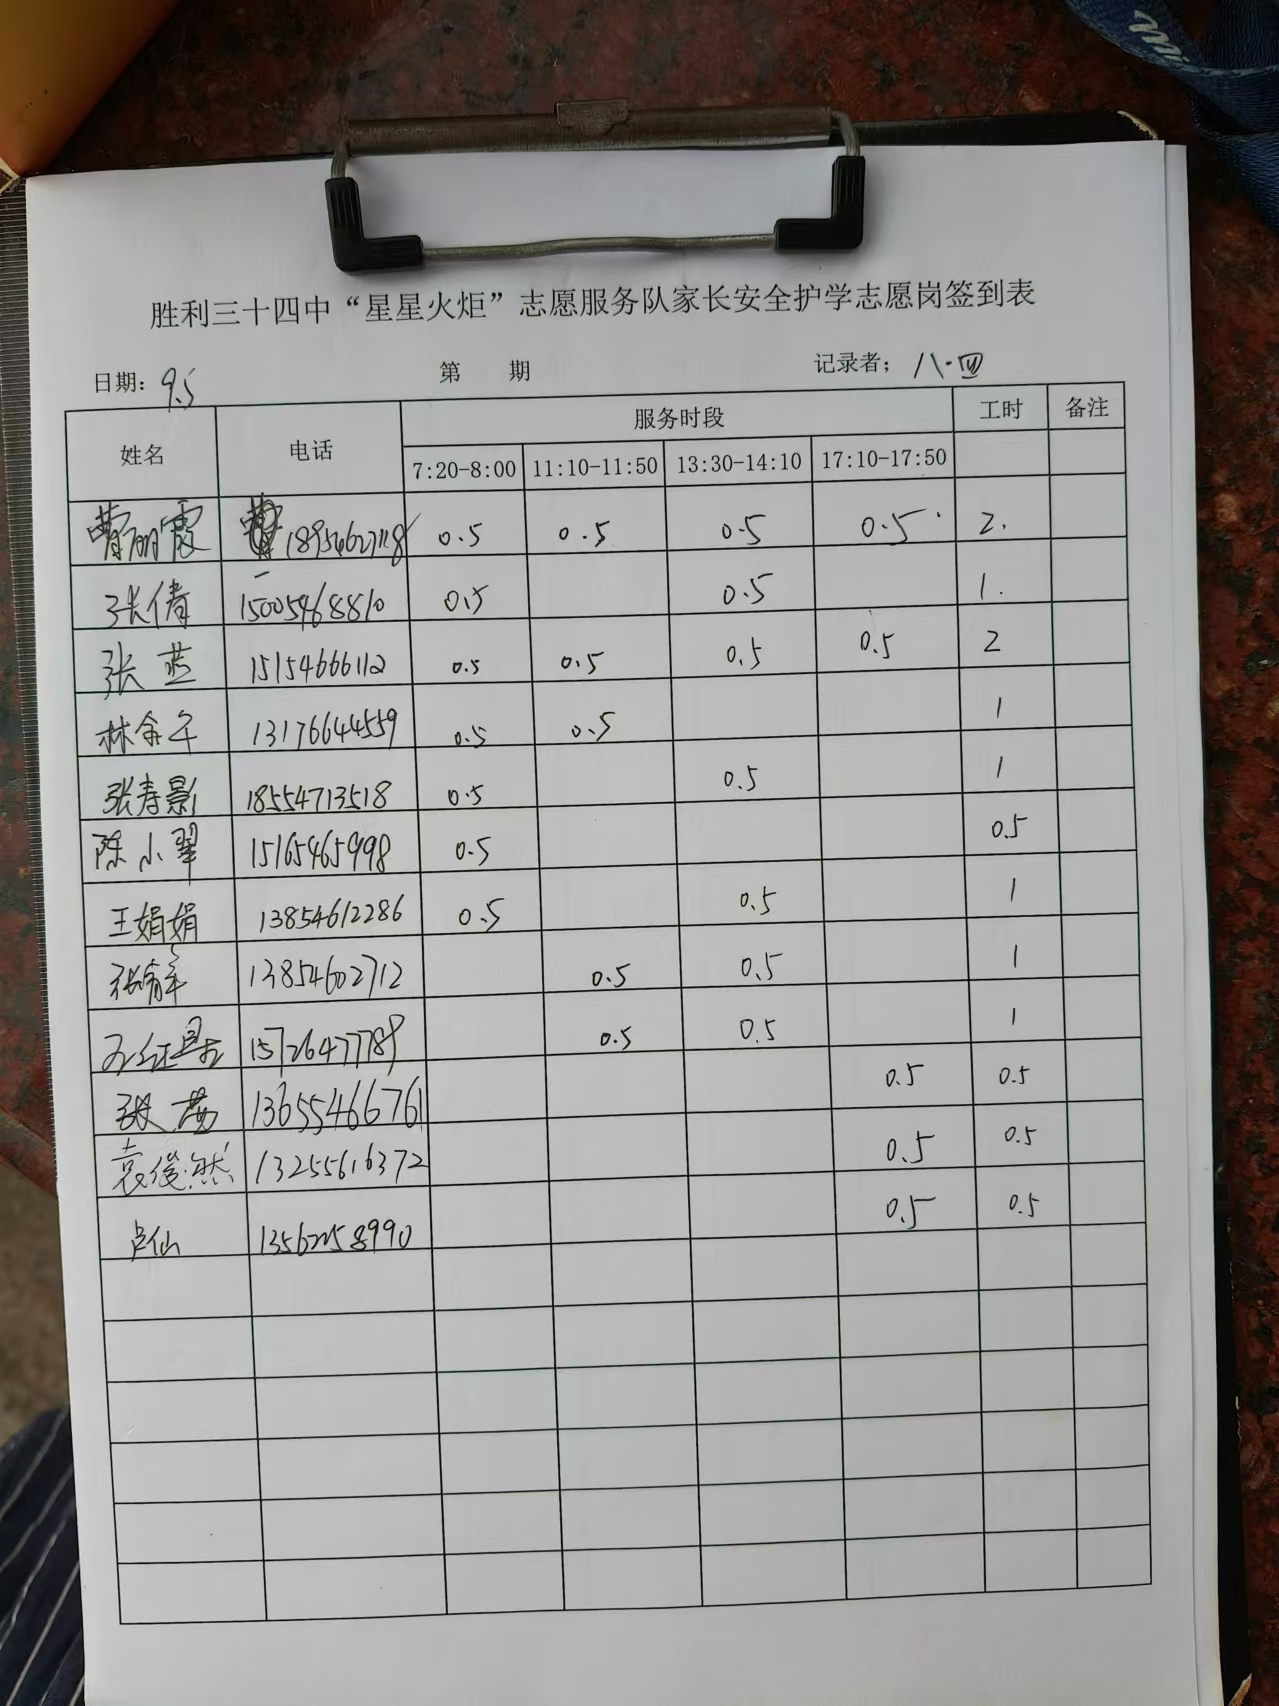 胜利三十四中“星星火炬”志愿服务队家长安全护学志愿岗签到表
日期: 9.5 第 期 记录者; 八.四
姓名 电话 服务时段 工时 备注
7:20-8:00 11:10-11:50 13:30-14:10 17:10-17:50
曹丽霞 18954627118 0.5 0.5 0.5 0.5 2.
张倩 15005468810 0.5 0.5 1.
张蓝 15154666112 0.5 0.5 0.5 0.5 2
13176644559 0.5 0.5 1
张寿影 18554713518 0.5 0.5 1
陈小翠 15165465998 0.5 0.5
王娟娟 13854612286 0.5 0.5 1
13854602712 0.5 0.5 1
15726477789 0.5 0.5 1
张 13655466761 0.5 0.5
袁俊然 13255616372 0.5 0.5
卢仙 13562258990 0.5 0.5